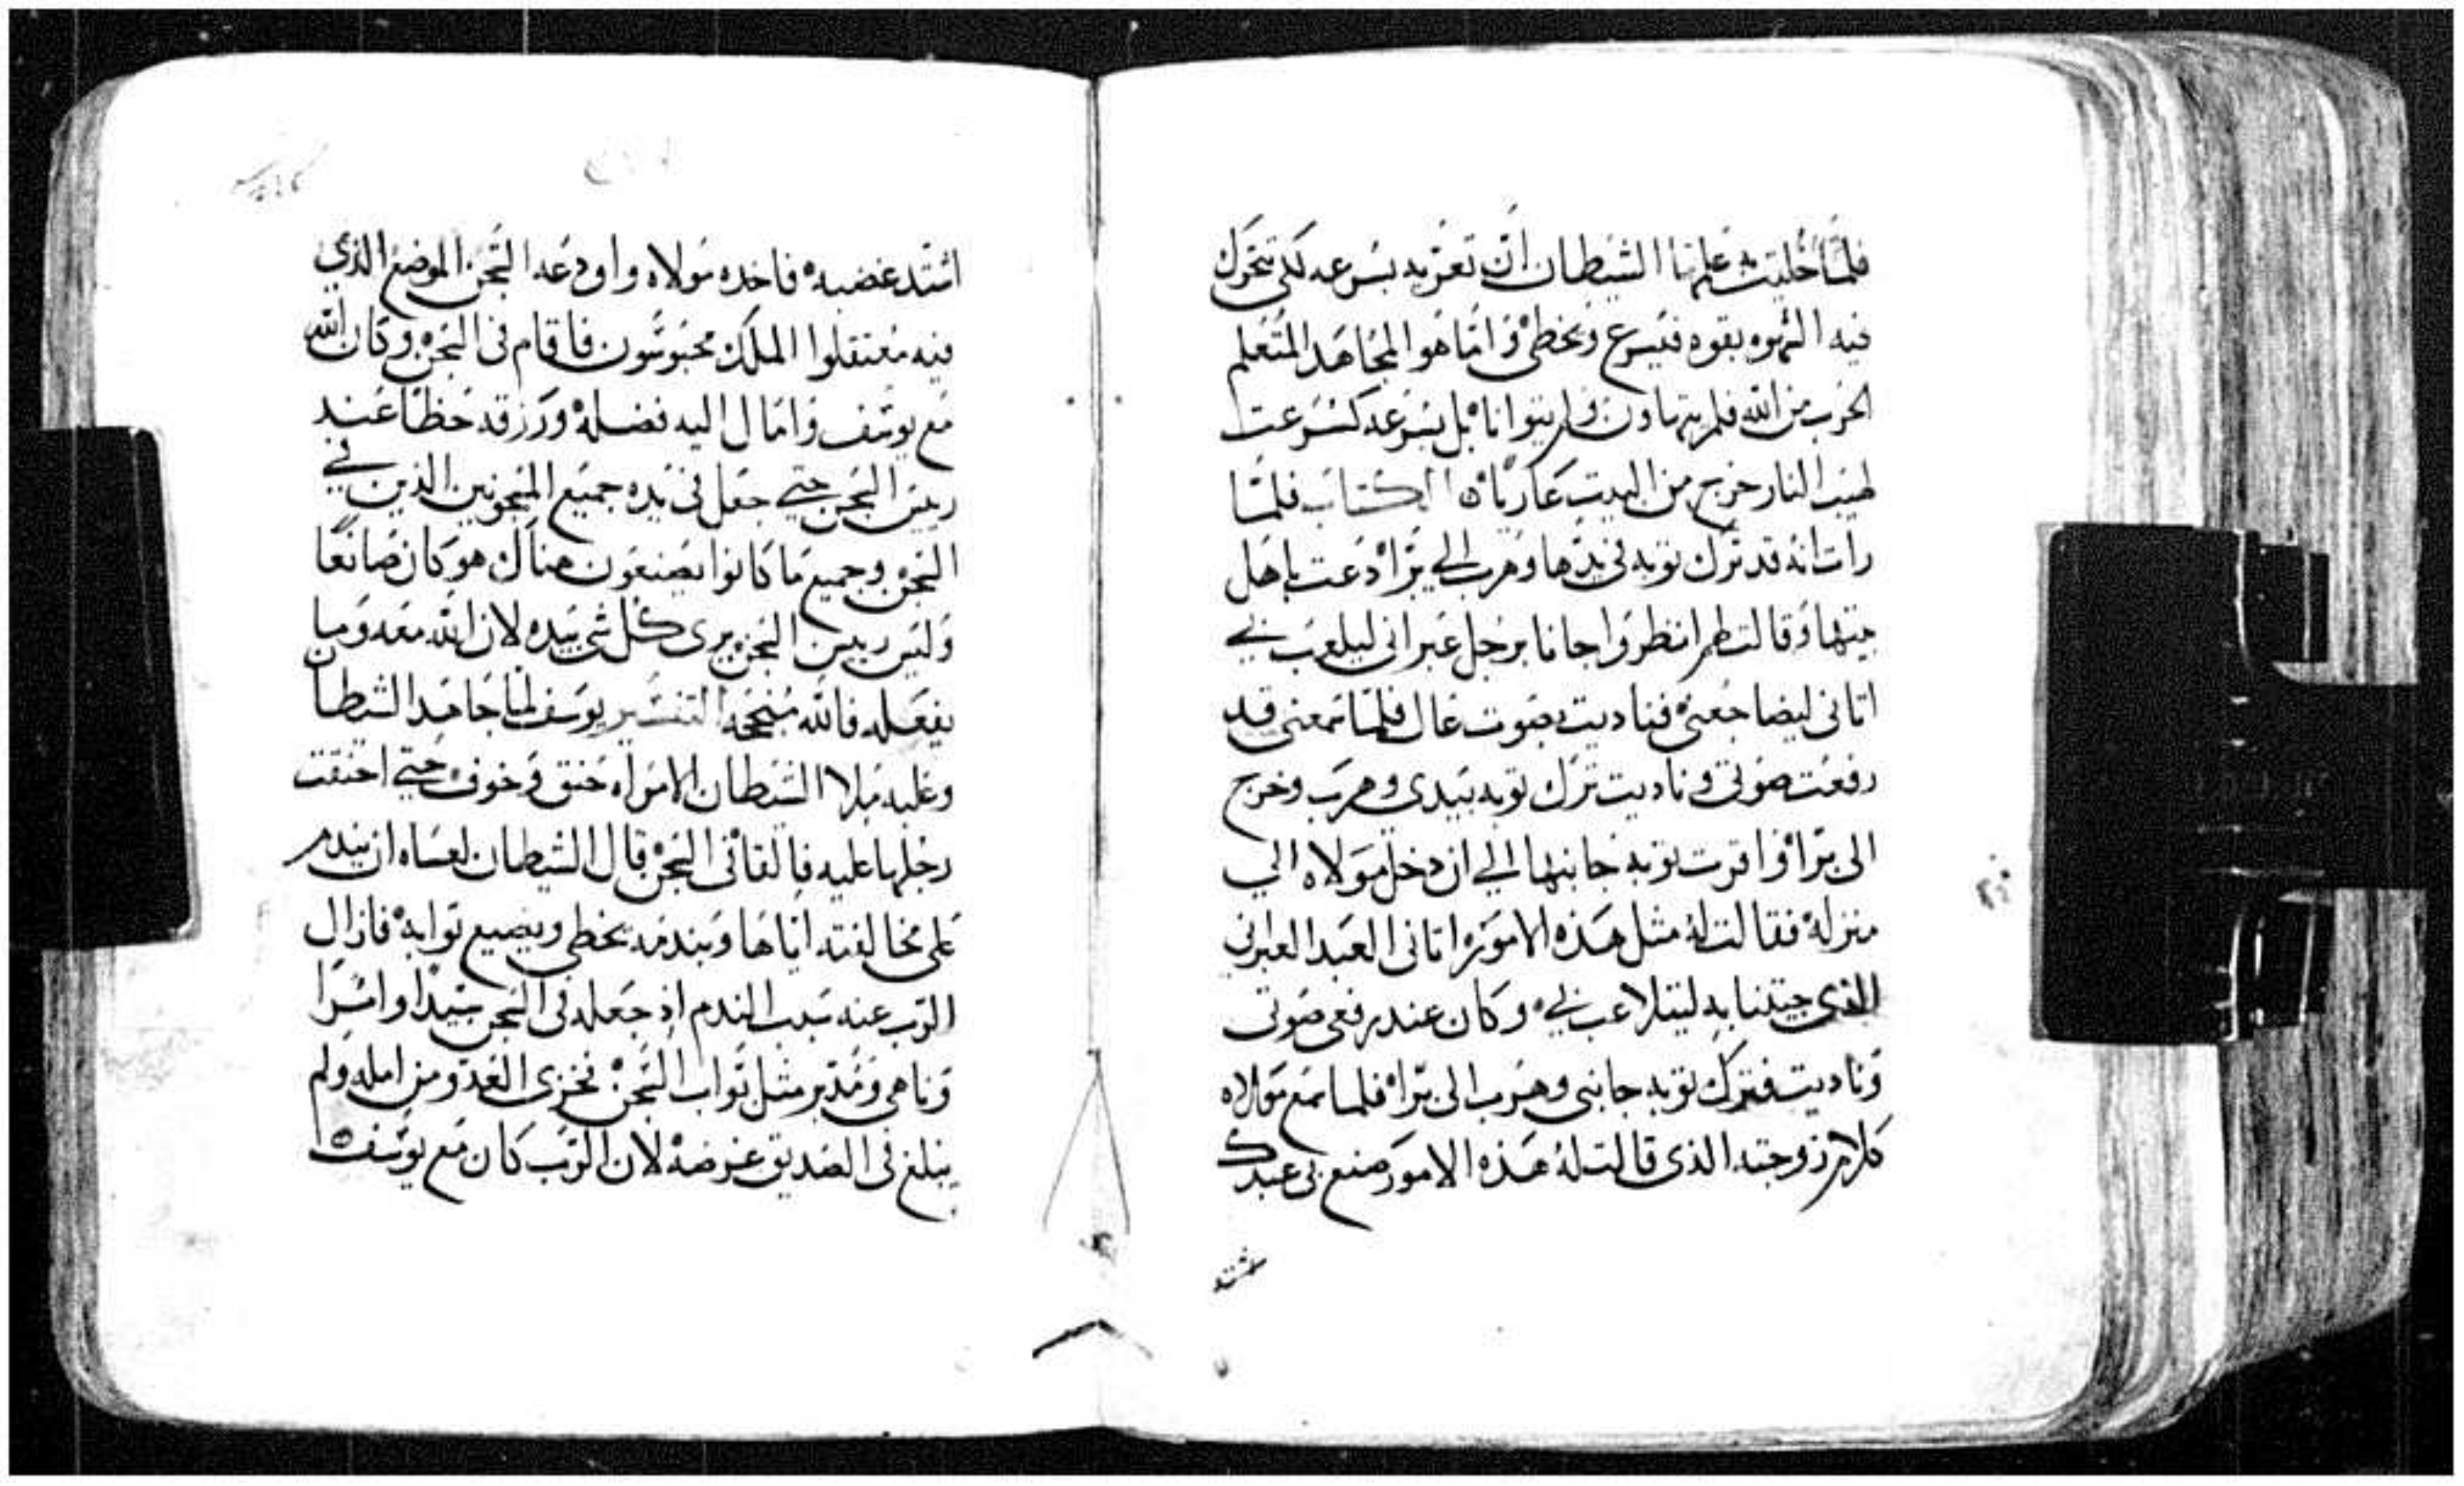 فلما خليت به علمها الشيطان ان تعريه بسرعه لكي تتحرك
فيه الشهوه بقوه فيسرع ويخطئ واما هو المجاهد المتعلم
الحرب من الله فلم يتهاون ولم يتوانا بل بسرعه كسرعت
لهيب النار خرج من البيت عاريا الكتاب فلما
رات انه قد ترك ثوبه في يدها وهرب الي برا دعت باهل
بيتها وقالت لهم انظروا جانا برجل عبراني ليلعب بي
اتاني ليضاجعني فناديت بصوت عال فلما سمعني قد
رفعت صوتي وناديت ترك ثوبه بيدي وهرب وخرج
الى برا واقرت ثوبه جانبها الي ان دخل مولاه الي
منزله فقالت له مثل هذه الامور اتاني العبد العبراني
الذي جيتنا به ليتلاعب بي وكان عند رفعي صوتي
وناديت فترك ثوبه جانبي وهرب الى برا فلما سمع مولاه
كلام زوجته الذي قالت له هذه الامور صنع بي عبدك
اشتد غضبه فاخده مولاه واودعه السجن الموضع الذي
فيه معتقلوا الملك محبوسون فاقام في السجن وكان الله
مع يوسف وامال اليه فضله ورزقه حظا عند
رييس السجن حتي جعل في يده جميع المسجونين الذين في
السجن وجميع ما كانوا يصنعون هناك هو كان صانعا
وليس رييس السجن يرى كل شي بيده لان الله معه وما
يفعله فالله منجحه التفسير يوسف لما جاهد الشيطان
وغلبه ملا الشيطان الامراه خنق وخوف حتي احنقت
رجلها عليه فالقاه في السجن قال الشيطان لعساه ان يندم
على مخالفته اياها وبندمه يخطي ويضيع ثوابه فازال
الرب عنه سبب الندم اذ جعله في السجن سيدا وامرا
وناهي ومدبر مثل نواب السجن فخزى العدو من امله ولم
يبلغ في الصديق غرضه لان الرب كان مع يوسف
اشتد